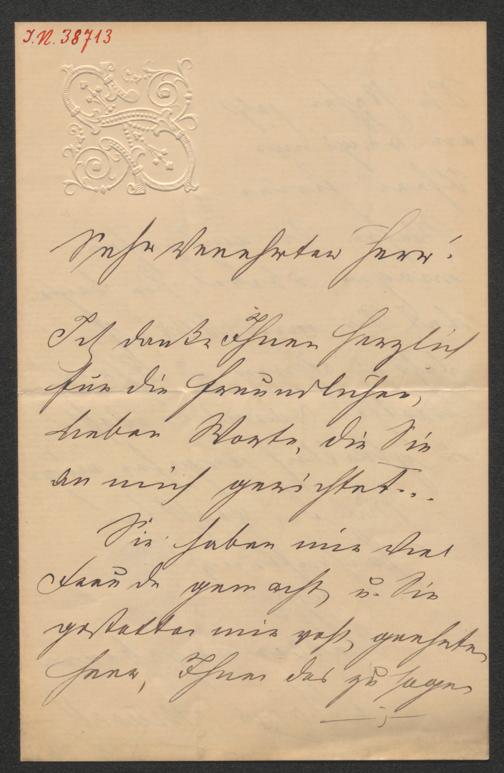 I.N. 38713
Sehr Verehrter Herr!
Ich danke Ihnen herzlich
für die freundlichen,
lieben Worte, die Sie
an mich gerichtet...
Sie haben mir viel
Freude gemacht u. Sie
gestatten mir wohl, geehrter
Herr, Ihnen das zu sagen